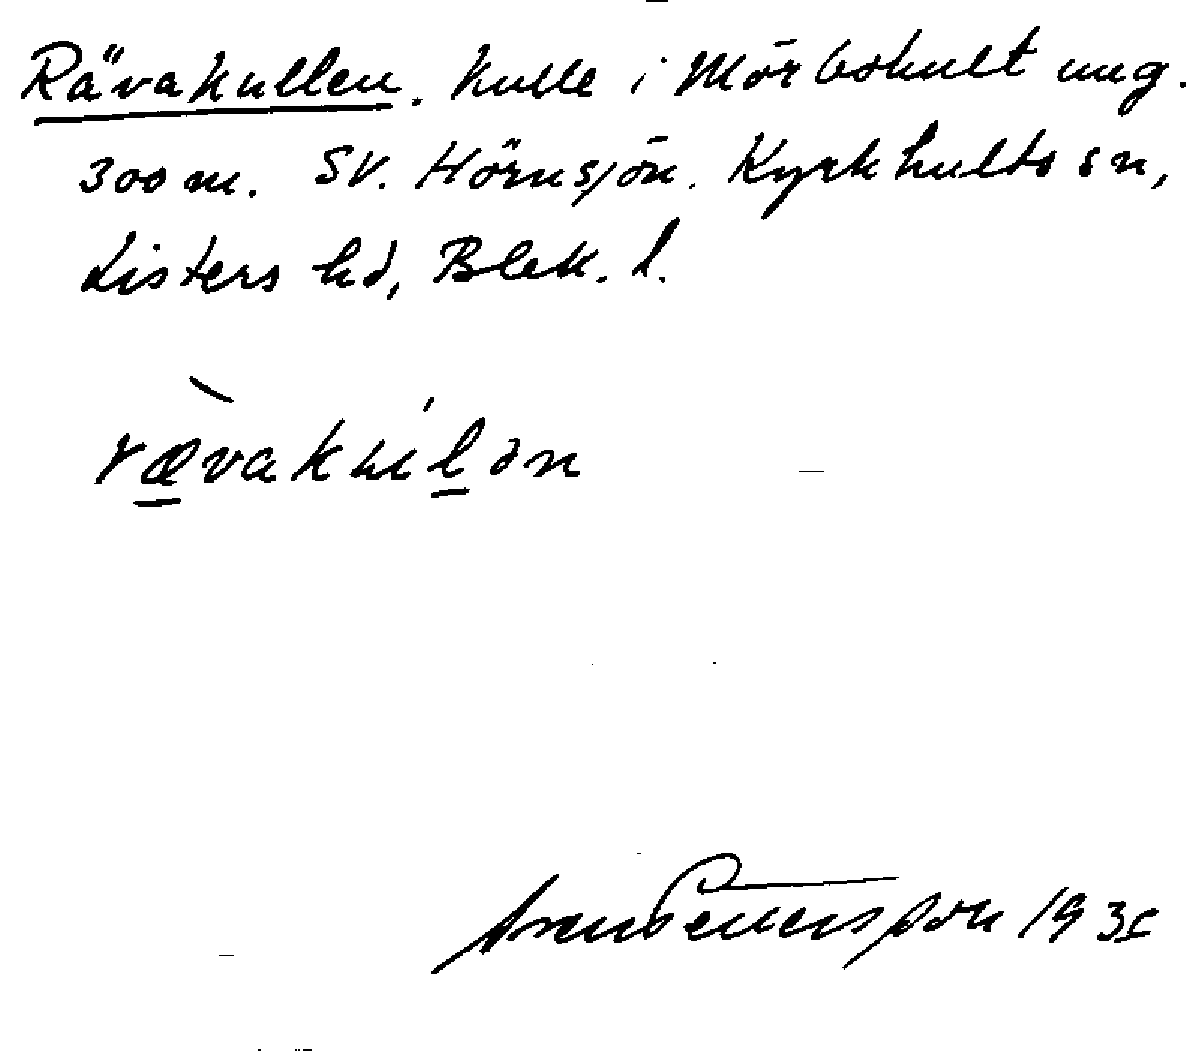 Rävakullen. Kulle i Mörbokult ung.
300 m. SV. Hörnsjön. Kyrkhults sn,
Listers hd, Blek. l.
rævakulən
Sven Pettersson 193